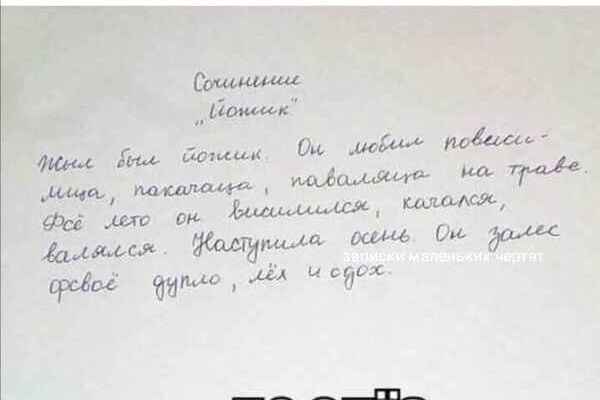 Сочинение
„Йожик"
Жыл был йожик. Он любил повеси-
лица, пакачаца, паваляца на траве.
Фсё лето он висилился, качался,
валялся. Наступила осень. Он залес
фсваё дупло, лёх и сдох.
записки маленьких чертат